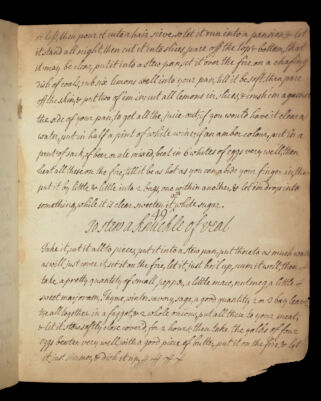 or less, then pour it into a hair sieve, so let it run into a pansion, & let
it stand all night, then cut it into slices, pare off the top & bottom, that
it may be clear, put it into a stew pan, set it over the fire, on a chafing
dish of coals, rub six lemons well into your pan, till it be soft, then pare
off the skin, & put two of 'em in, cut all lemons in slices, & crush 'em against
the side of your pan, to get all the juice out, if you would have it clear as
water, put in half a pint of white wine; if an amber colour, put in a
pint of sack, if been on ale mixed, beat in 6 whites of eggs very well, then
heat all these on the fire, till it be as hot as you can abide your finger in, then
put it by little & little into 2 bags, one within another, & let it drop into
something, while it is clear sweeten it with sugar.
49
To stew a knuckle of veal
Take it, cut it all to pieces, put it into a stew pan, put thereto as much water
as will just cover it, set it on the fire, let it just boil up, scum it well, then
take a pretty quantity of small pepper, a little mace, nutmeg, a little
sweet marjoram, thyme, winter savory, sage, a good quantity, 2 or 3 bay leaves
tye all together in a faggot, or 2 whole onions, put all these to your meat,
& let it stew softly close covered for 2 hours, then take the yolks of four
eggs beaten very well with a good piece of butter, put it on the fire, & let
it just simmer, & dish it up.